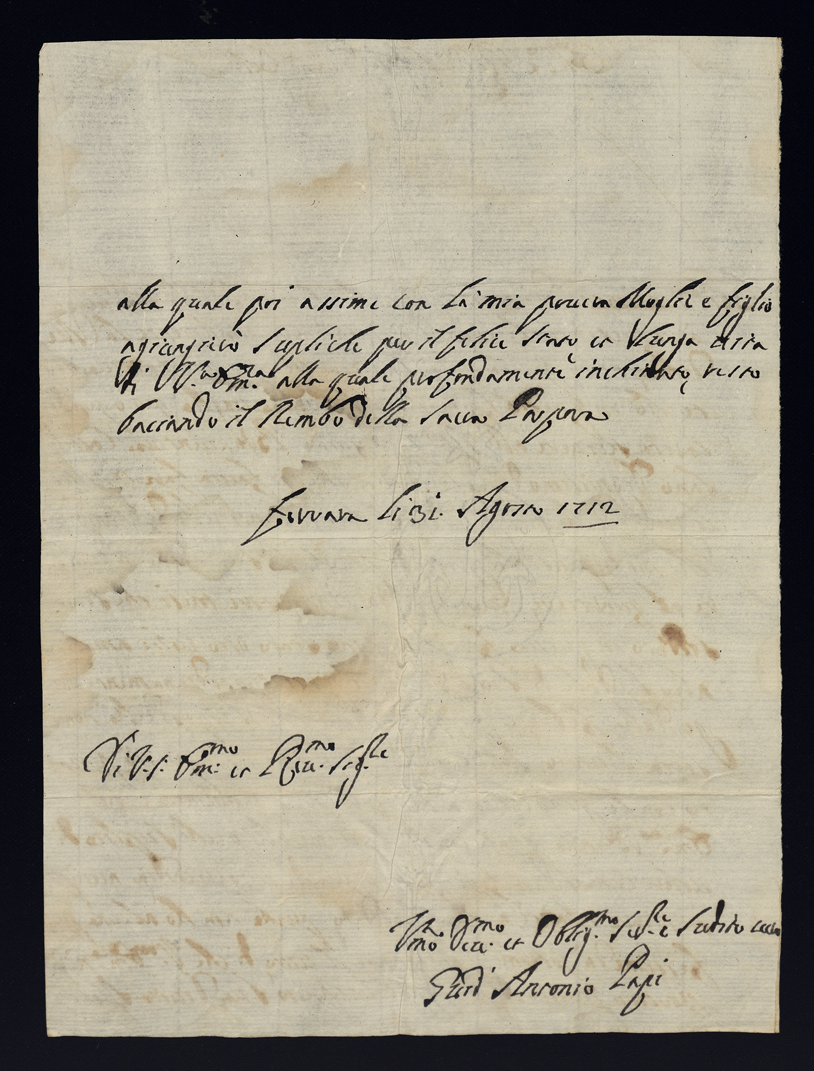 alla quale poi assime con la mia povera Moglie e figlio
agiungierò supliche per il felice stato et lunga vita
di V.ra Em.za alla quale profondamente inchinato, resto
bacciando il lembo della Sacra Porpora
Ferrara li 31. Agosto 1712
Di V.S. Em.mo et Rev.mo Sig.re
V.mo Dev.mo et Oblig.mo Ser.re e Sudito
Antonio Papi